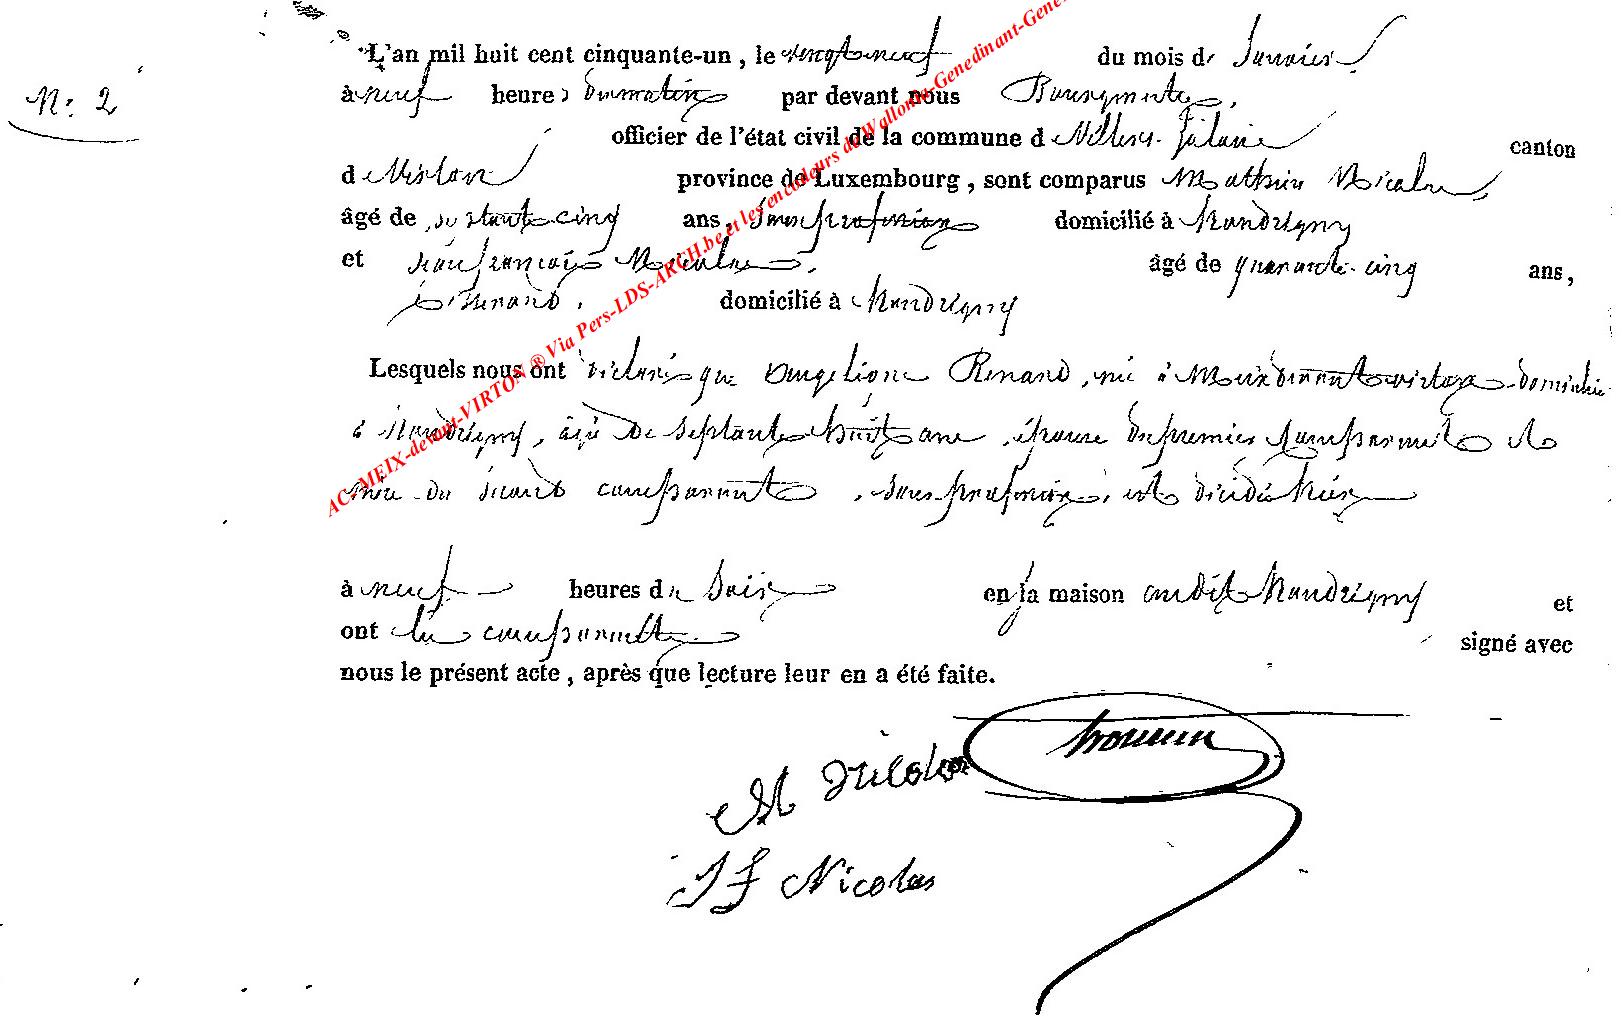 N.o 2
L'an mil huit cent cinquante-un, le vingt neuf du mois de Janvier
à neuf heures du matin par devant nous Bourgmestre,
officier de l'état civil de la commune d Villers-Laloue canton
de Virton province de Luxembourg, sont comparus Mathieu Nicolas,
âgé de septante cinq ans, sans profession domicilié à Houdrigny
et Jean françois Nicolas, âgé de quarante-cinq ans,
domicilié à Houdrigny
Lesquels nous ont déclaré que Angelique Renard, née à Meix devant virton domiciliée
à Houdrigny, âgée de septante huit ans, épouse du premier comparant et
mère du second comparant, sans profession, est décédée hier
à neuf heures du Soir en la maison audit Houdrigny et
ont les comparants signé avec
nous le présent acte, après que lecture leur en a été faite.
M Nicolas
J f Nicolas
AC-MEIX-devant-VIRTON ® Via Pers-LDS-ARCH.be et les encodeurs de Wallonia-Genedinant-Gene